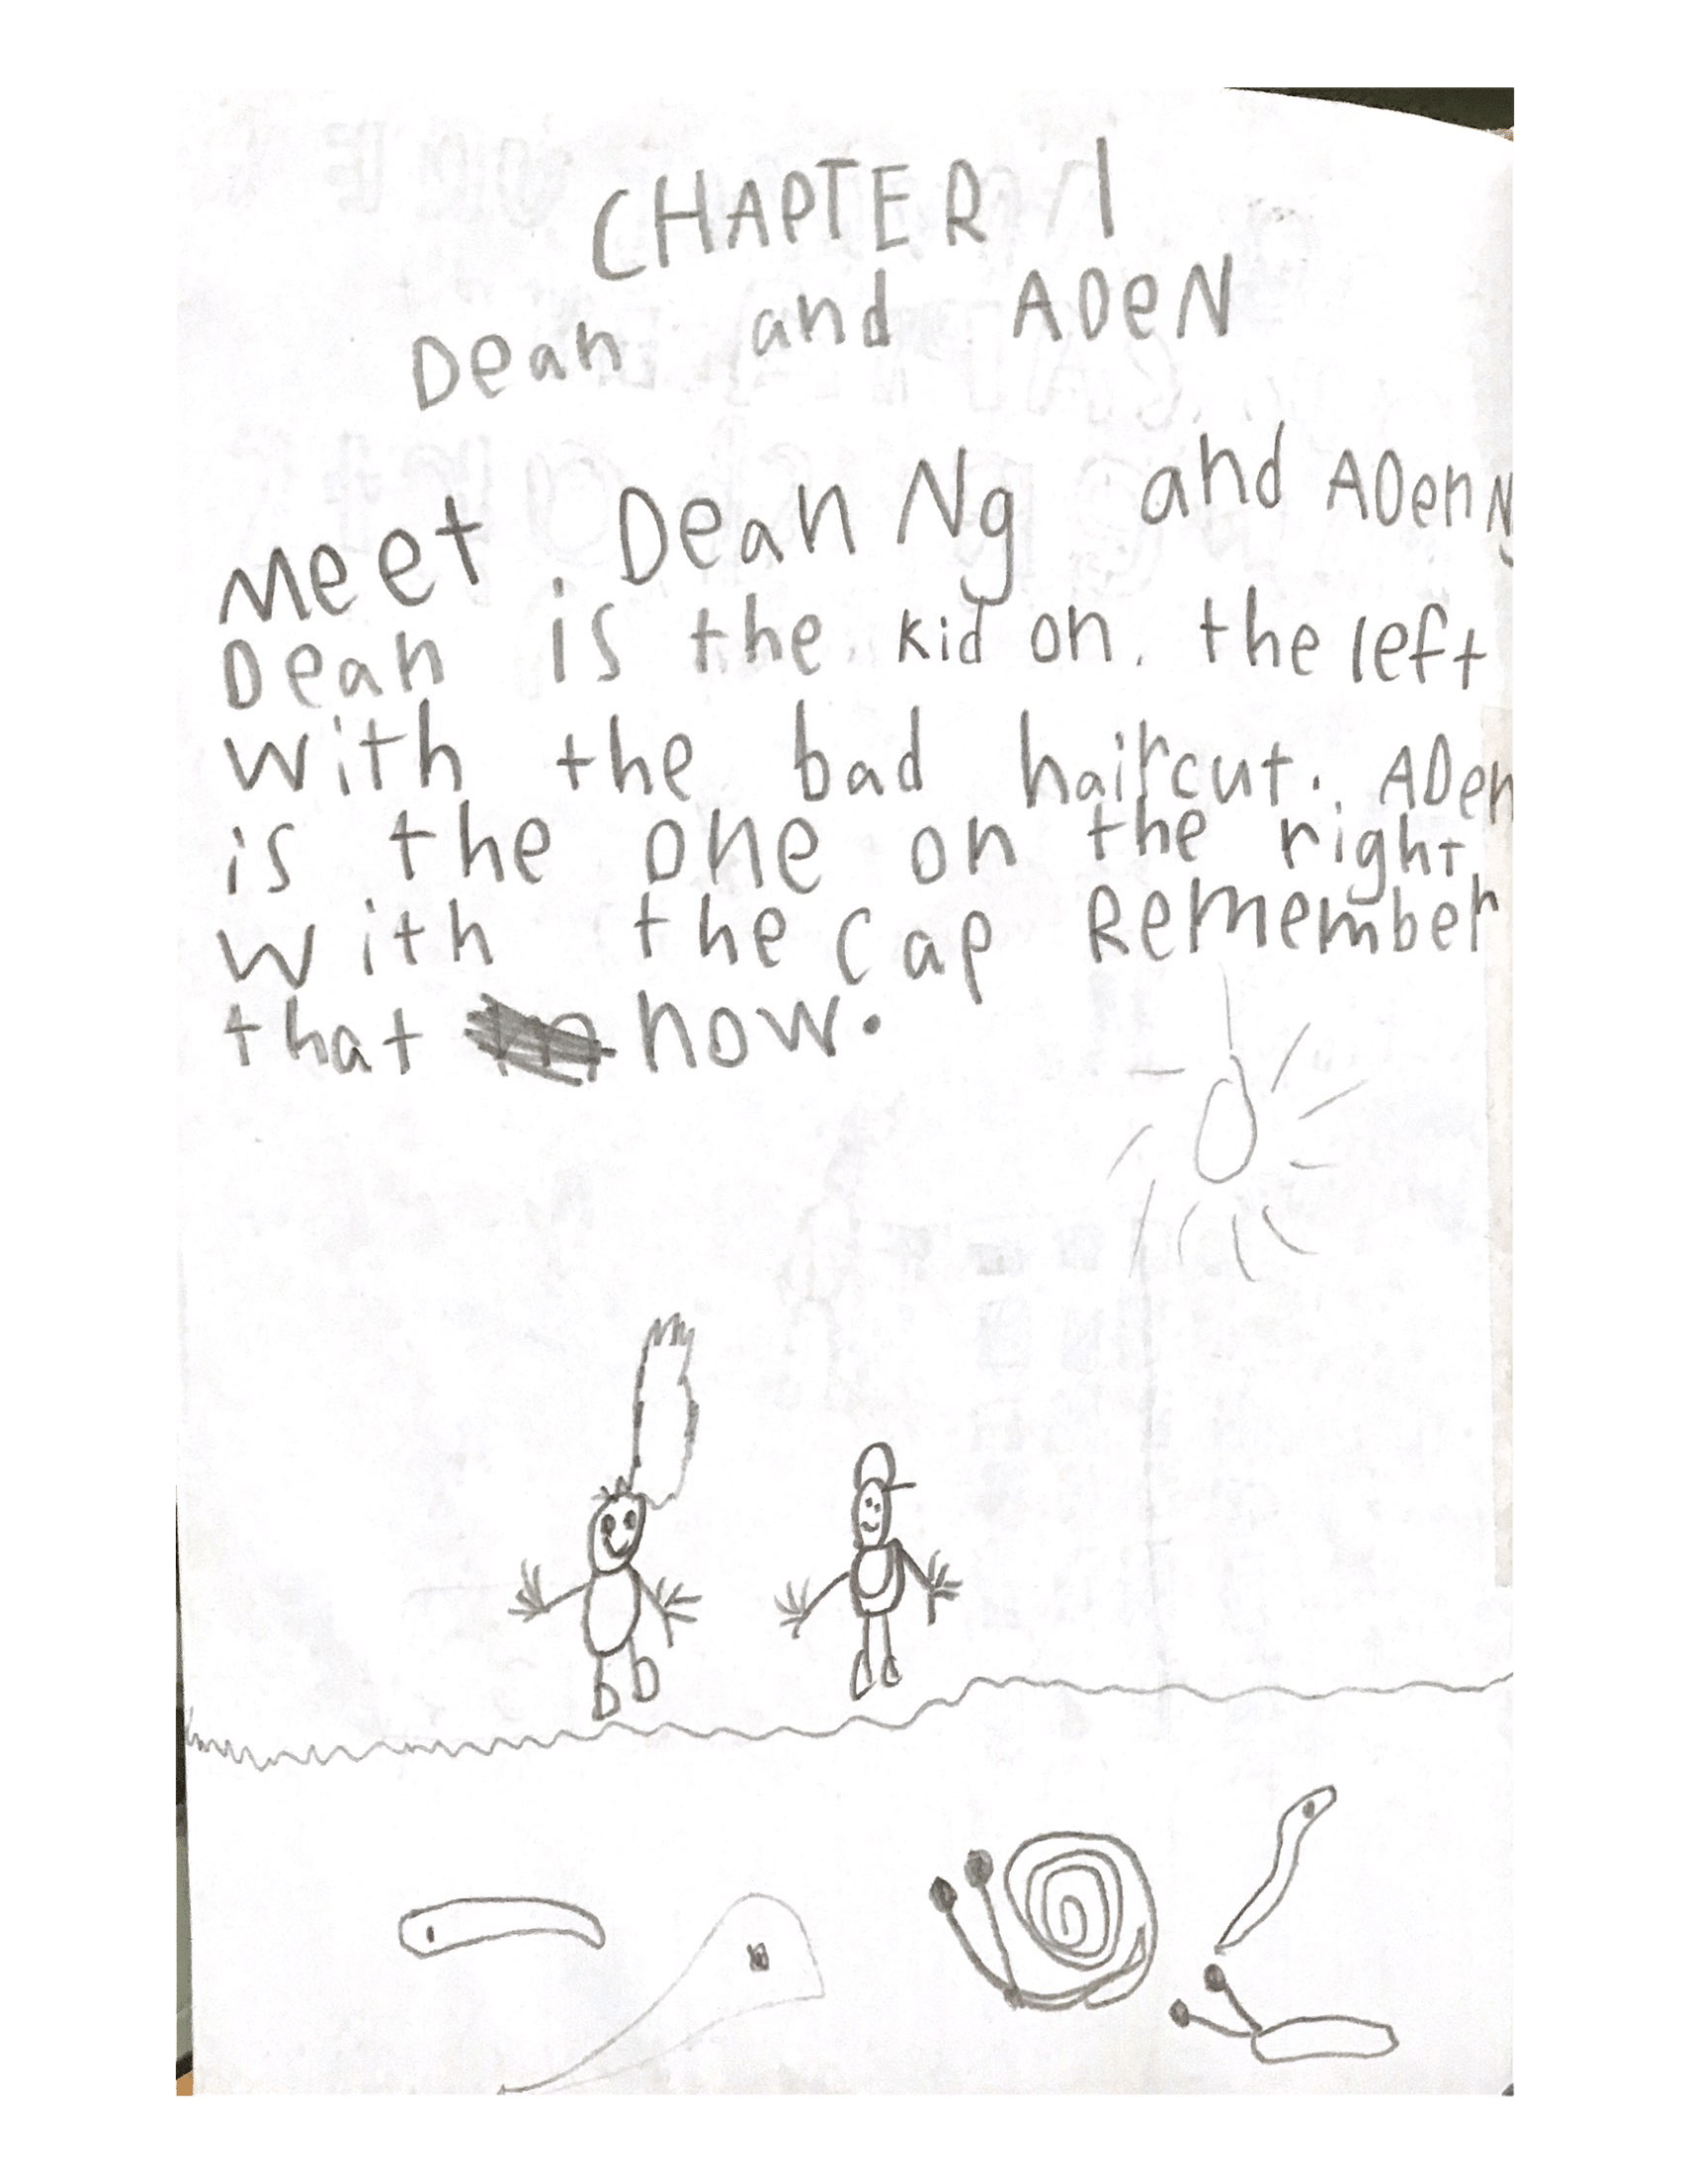 CHAPTER 1
Dean and ADeN
Meet Dean Ng and ADen Ng
Dean is the kid on. the left
with the bad haircut. ADen
is the one on the right
with the cap Remember
that now.